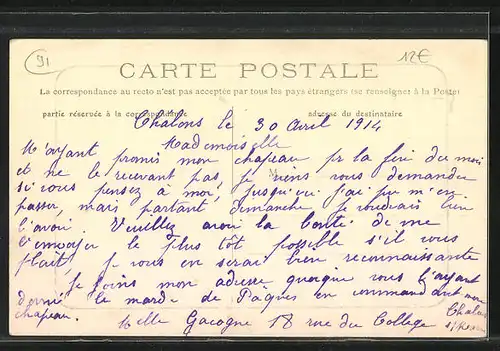 91
12€
CARTE POSTALE
La correspondance au recto n'est pas acceptée par tous les pays étrangers (se renseigner à la Poste)
partie réservée à la correspondance
adresse du destinataire
Chalons le 30 avril 1914
Mademoiselle
M'ayant promis mon chapeau pr la fin du mois
et ne le recevant pas, je viens vous demander
si vous pensez à moi, jusqu'ici j'ai pu m'en
passer, mais partant dimanche je voudrais bien
l'avoir. Veuillez avoir la bonté de me
l'envoyer le plus tôt possible s'il vous
plait, je vous en serai bien reconnaissante
Je joins mon adresse quoique vous l'ayant
donné le mardi de Pâques en commandant mon
chapeau.
Melle Gacogne 18 rue du College
Chalons
s/